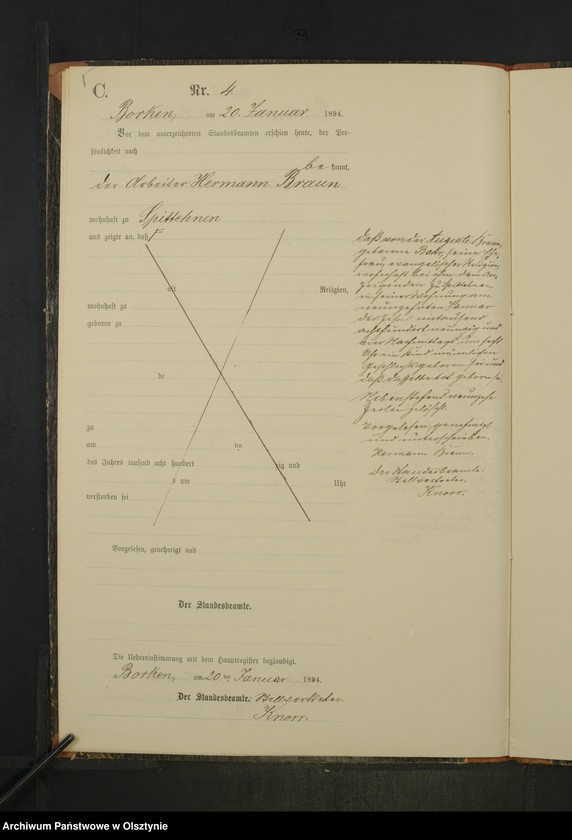 C.
Nr. 4
Borken, am 20. Januar 1894.
Vor dem unterzeichneten Standesbeamten erschien heute, der Per-
sönlichkeit nach
bekannt,
der Arbeiter Hermann Braun
wohnhaft zu Spittehnen
und zeigte an, daß
alt Religion,
wohnhaft zu
geboren zu
de
zu
am ten
des Jahres tausend acht hundert zig und
um Uhr
verstorben sei
Vorgelesen, genehmigt und
Der Standesbeamte.
Die Uebereinstimmung mit dem Hauptregister beglaubigt.
Borken, am 20ten Januar 1894.
Der Standesbeamte. Stellvertreter
Knorr.
daß von der Auguste Braun,
geborene Bahr, seine Ehe-
frau, evangelischer Religion,
wohnhaft bei ihm dem An-
zeigenden zu Spittehnen
in seiner Wohnung am
neunzehnten Januar
des Jahres eintausend
achthundert neunzig und
vier Nachmittags um sechs
Uhr ein Kind männlichen
Geschlechts geboren sei und
daß dasselbe tot geboren sei.
Nebenstehend
Zeilen gelöscht.
Vorgelesen, genehmigt
und unterschrieben.
Hermann Braun.
Der Standesbeamte.
Stellvertreter.
Knorr.
Archiwum Państwowe w Olsztynie